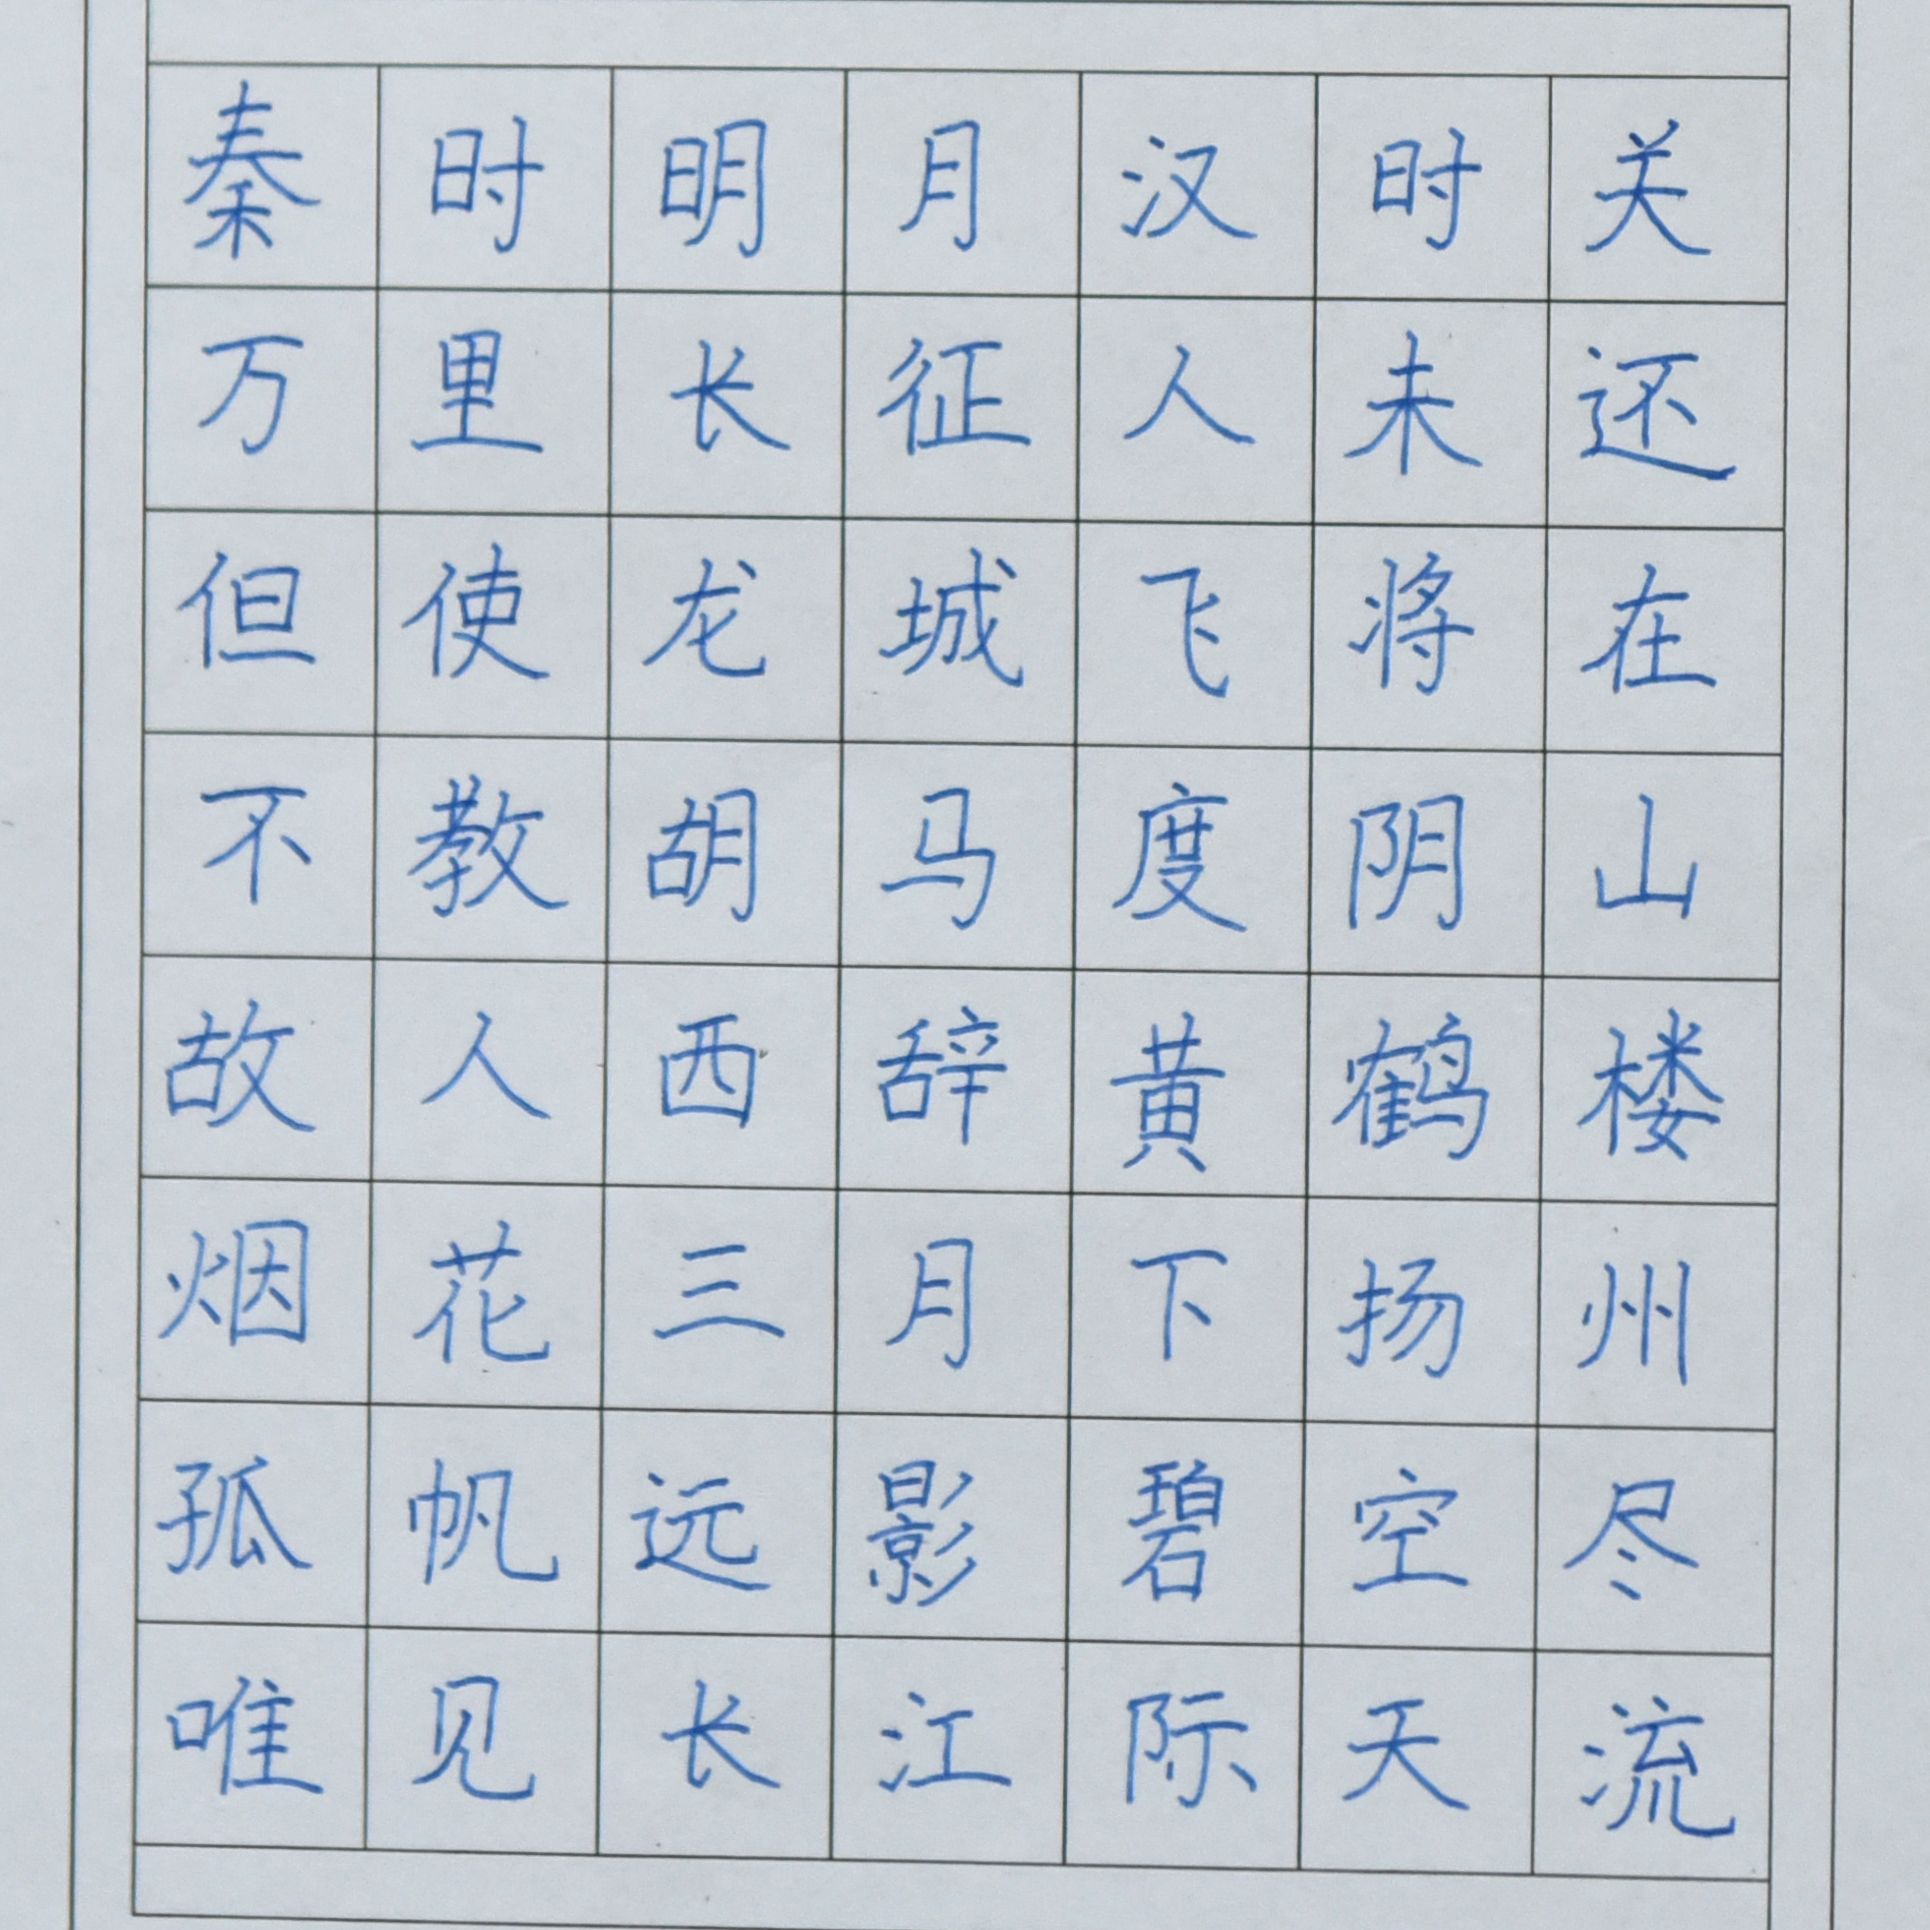 秦时明月汉时关
万里长征人未还
但使龙城飞将在
不教胡马度阴山
故人西辞黄鹤楼
烟花三月下扬州
孤帆远影碧空尽
唯见长江际天流